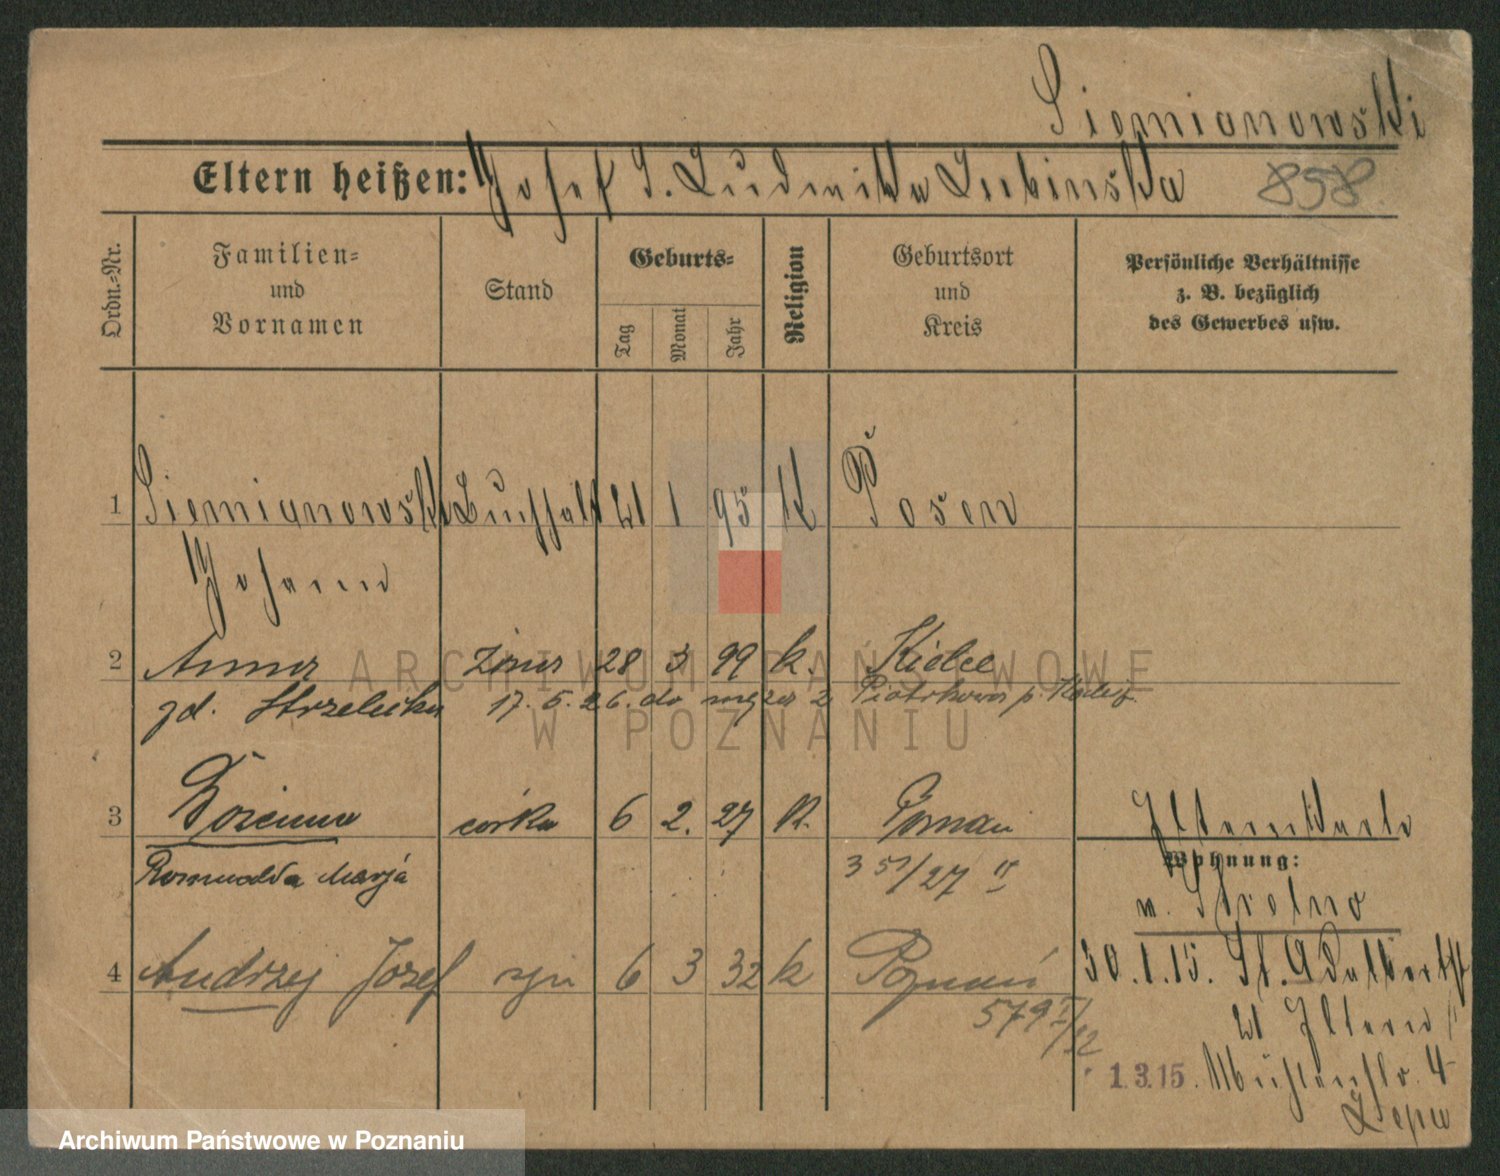 Siemianowski
Eltern heißen: Josef S. Ludwika Lubinska
858.
Ordn.-Nr.
Familien-
und
Vornamen
Stand
Geburts-
Tag
Monat
Jahr
Religion
Geburtsort
und
Kreis
Persönliche Verhältnisse
z. B. bezüglich
des Gewerbes usw.
1 Siemianowski Buchhalt 21 1 95 K Posen
Johann
2 Anna żona 28 3 99 k. Kielce
zd. Strzelecka 17.5.26. do męża z Piotrkowa p. Kolej.
3 Bożenna córka 6 2. 27 k. Poznań
Romualda Marja 351/27 II
4 Andrzej Józef syn 6 3 32 k Poznań
579
Wohnung:
w. Strelno
30.1.15. St. Adalbertst
21 Eltern
1.3.15. Mühlenstr. 4
ARCHIWUM PAŃSTWOWE
W POZNANIU
Archiwum Państwowe w Poznaniu